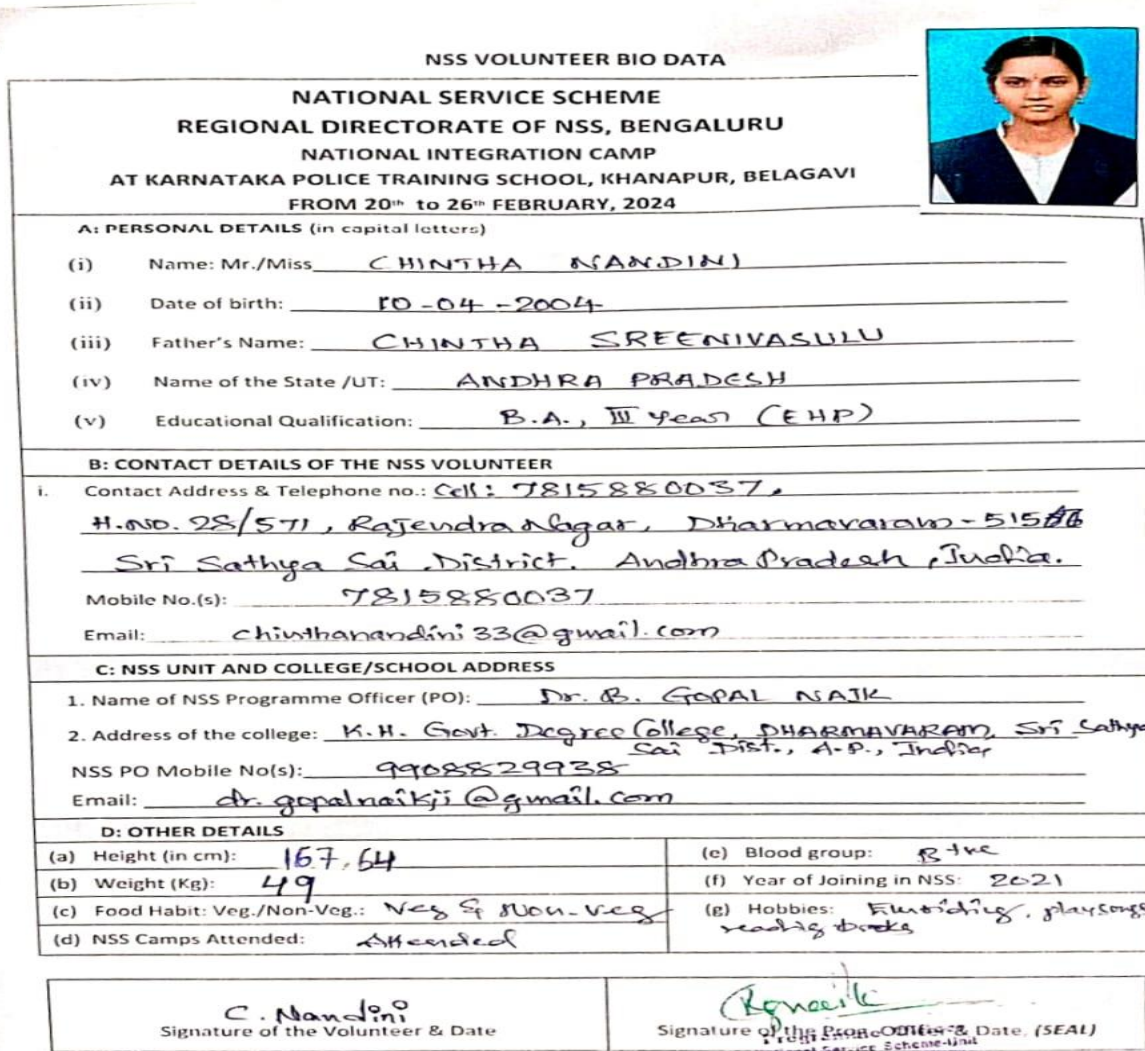 NSS VOLUNTEER BIO DATA
NATIONAL SERVICE SCHEME
REGIONAL DIRECTORATE OF NSS, BENGALURU
NATIONAL INTEGRATION CAMP
AT KARNATAKA POLICE TRAINING SCHOOL, KHANAPUR, BELAGAVI
FROM 20th to 26th FEBRUARY, 2024
A: PERSONAL DETAILS (in capital letters)
(i) Name: Mr./Miss CHINTHA NANDINI
(ii) Date of birth: 10-04-2004
(iii) Father's Name: CHINTHA SREENIVASULU
(iv) Name of the State /UT: ANDHRA PRADESH
(v) Educational Qualification: B.A., III Year (EHP)
B: CONTACT DETAILS OF THE NSS VOLUNTEER
i. Contact Address & Telephone no.: Cell: 7815880037,
H.NO. 28/571, Rajendra Nagar, Dharmavaram -
Sri Sathya Sai District. Andhra Pradesh, India.
Mobile No.(s): 7815880037
Email: chinthanandini33@gmail.com
C: NSS UNIT AND COLLEGE/SCHOOL ADDRESS
1. Name of NSS Programme Officer (PO): Dr. B. GOPAL NAIK
2. Address of the college: K.H. Govt. Degree College, DHARMAVARAM, Sri Sathya
Sai Dist., A.P., India
NSS PO Mobile No(s): 9908829938
Email: dr.gopalnaikji@gmail.com
D: OTHER DETAILS
(a) Height (in cm): 167.64 (e) Blood group: B +ve
(b) Weight (Kg): 49 (f) Year of Joining in NSS: 2021
(c) Food Habit: Veg./Non-Veg.: Veg & Non-Veg (g) Hobbies: playsongs
reading books
(d) NSS Camps Attended: Attended
C. Nandini
Signature of the Volunteer & Date
Signature of the Prog. Officer & Date, (SEAL)
Scheme-Unit